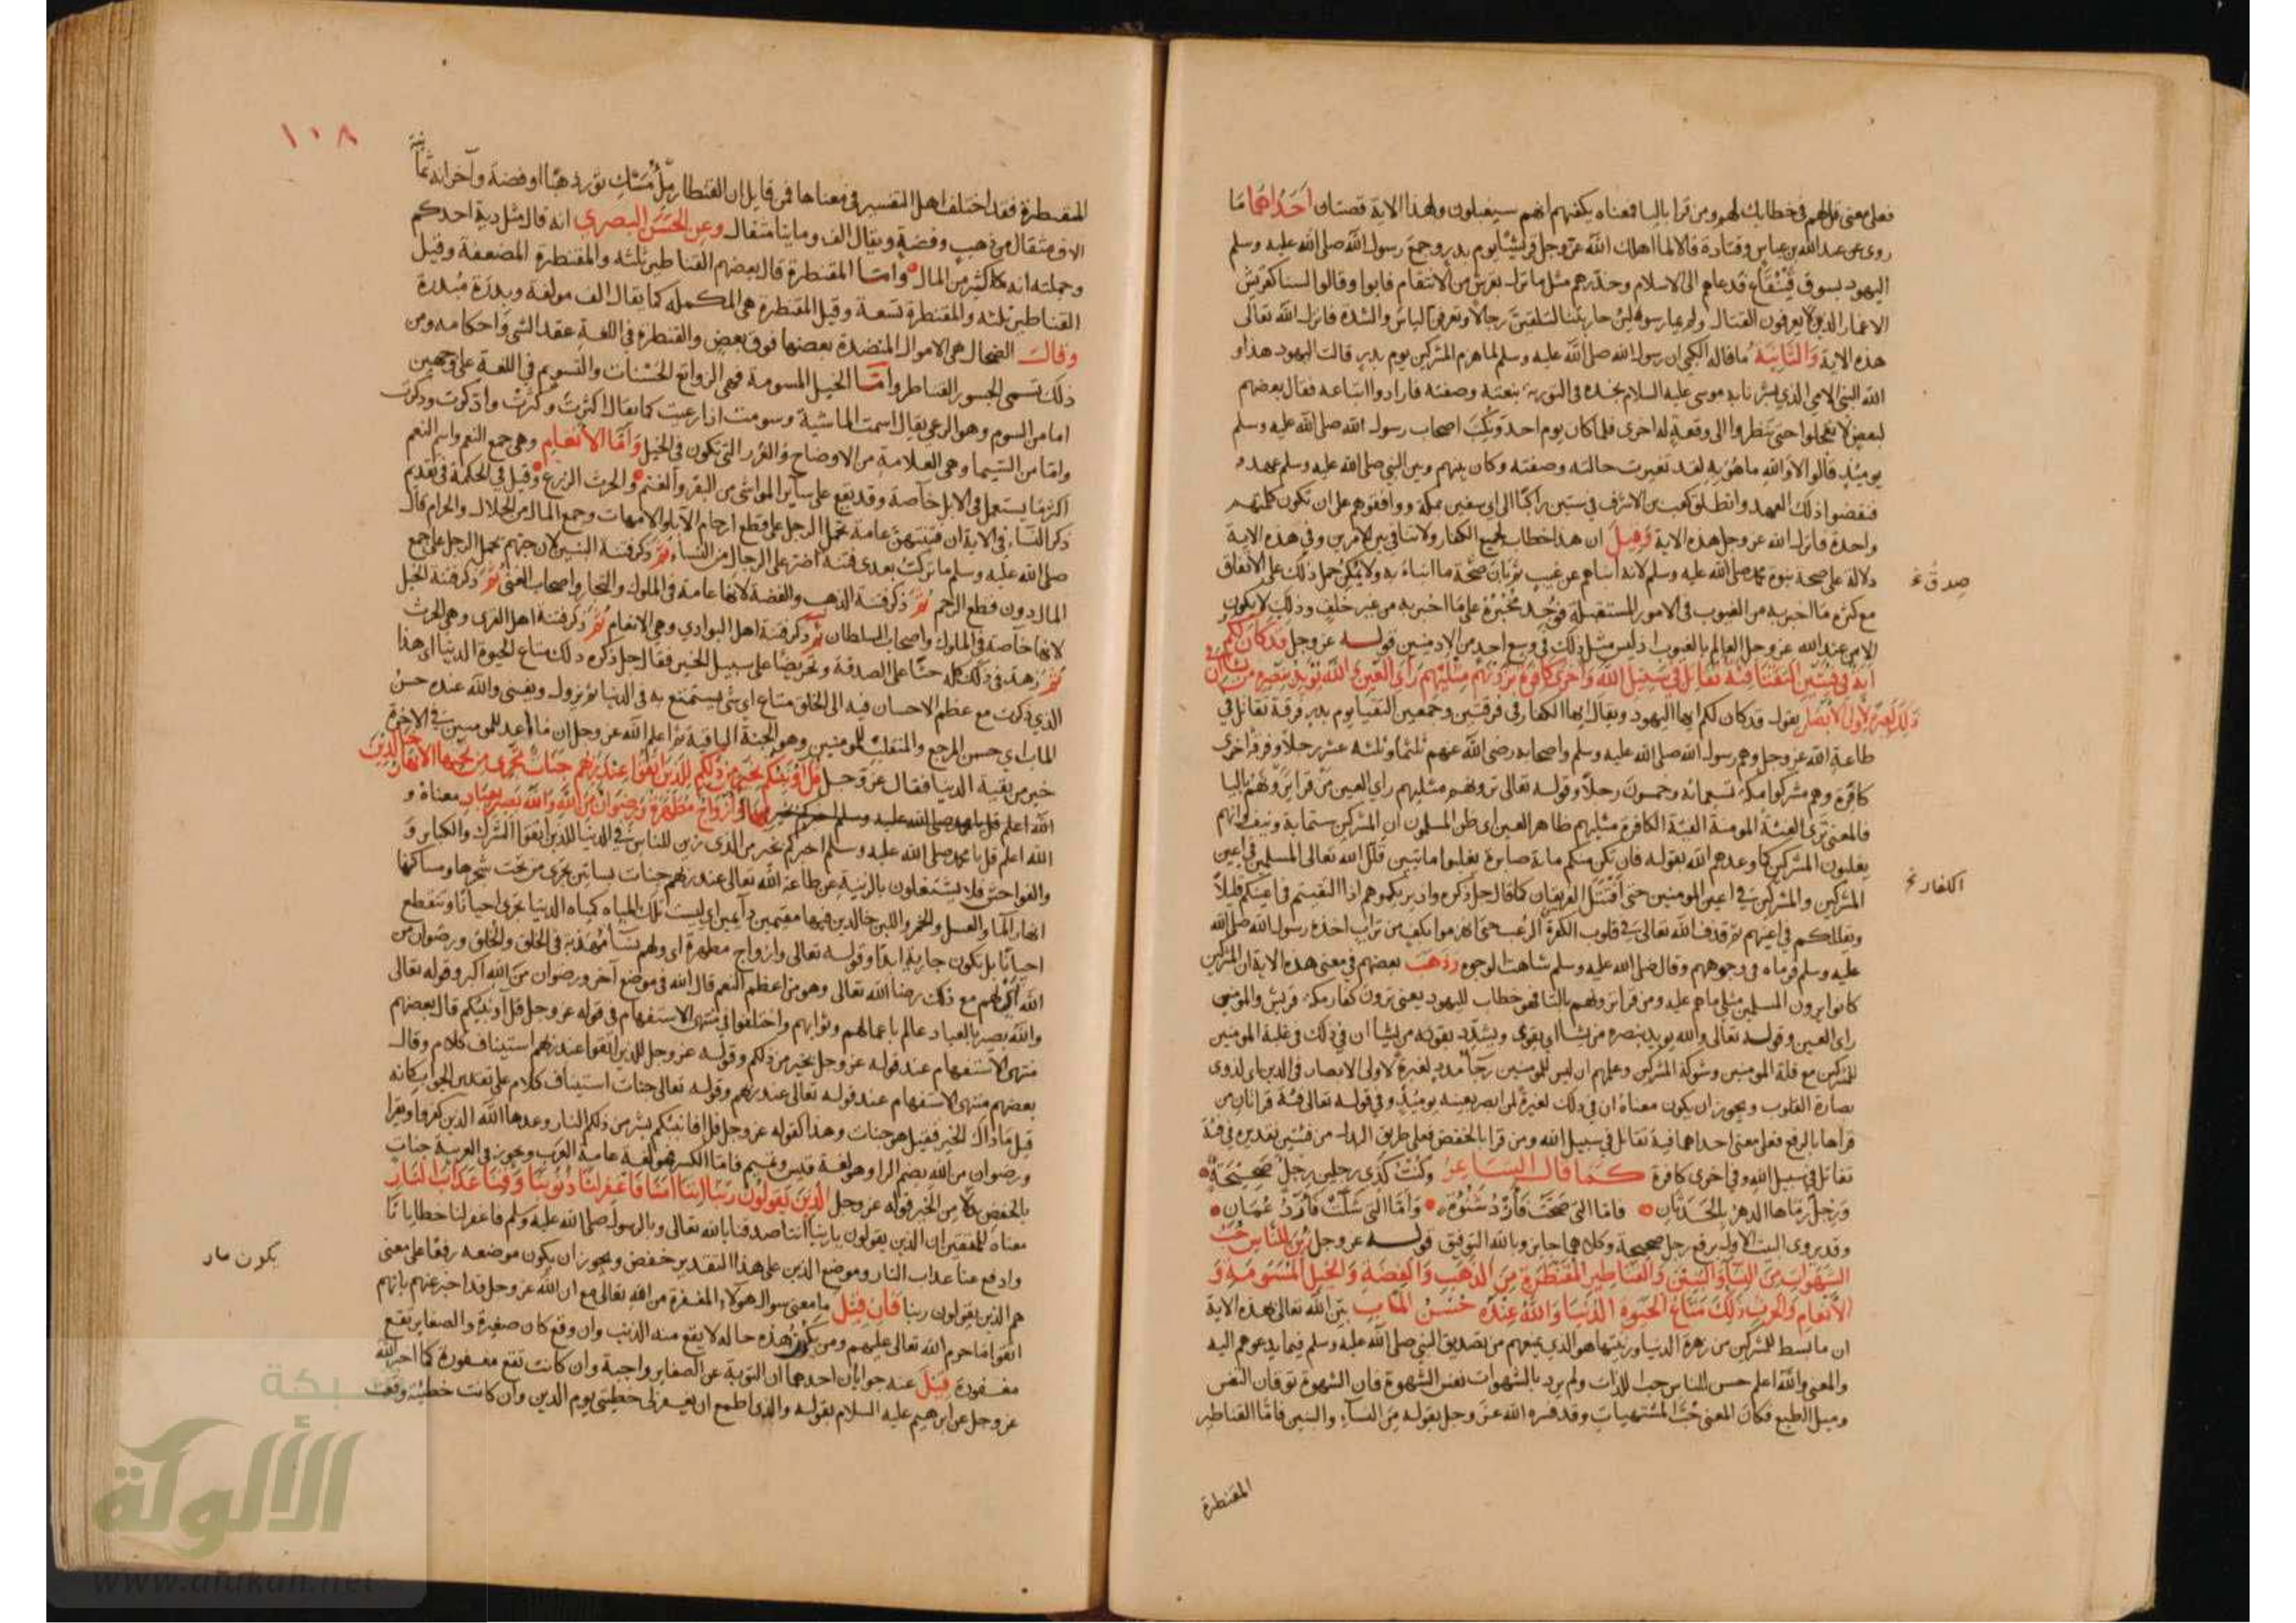 فعلى معنى قل لهم في خطابك لهم ومن قرا باليا فمعناه بلغهم انهم سيغلبون ولهذا الاية قصتان احداهما ما
روى عن عبد الله بن عباس وقتادة قالا لما اهلك الله عز وجل قريشا يوم بدر وجمع رسول الله صلى الله عليه وسلم
اليهود بسوق قينقاع فدعاهم الى الاسلام وحذرهم مثل ما نزل بقريش من الانتقام فابوا وقالوا لسنا كقريش
الاغمار الذين لا يعرفون القتال ولم يمارسوه لئن حاربتنا لتلقين رجالا وتعرفن الباس والشدة فانزل الله تعالى
هذه الاية والثانية ما قاله الكلبي ان رسول الله صلى الله عليه وسلم لما هزم المشركين يوم بدر قالت اليهود هذا و
الله النبي الامي الذي بشرنا به موسى عليه السلام نجده في التورية بنعته وصفته فارادوا اتباعه فقال بعضهم
لبعض لا تعجلوا حتى تنظروا الى وقعة له اخرى فلما كان يوم احد ونكب اصحاب رسول الله صلى الله عليه وسلم
يومئذ قالوا لا والله ما هو به لقد تغيرت حالته وصفته وكان بينهم وبين النبي صلى الله عليه وسلم عهد و
فنقضوا ذلك العهد وانطلق كعب بن الاشرف في ستين راكبا الى ابي سفين بمكة ووافقوهم على ان تكون كلمتهم
واحدة فانزل الله عز وجل هذه الاية وقيل ان هذا خطاب لجميع الكفار ولا تنافي بين الامرين وفي هذه الاية
دلالة على صحة نبوة محمد صلى الله عليه وسلم لانه انباهم عن غيب ثم بان صحة ما انباء به ولا يمكن حمل ذلك على الاتفاق
صدق خ
مع كثرة ما اخبر به من الغيوب في الامور المستقبلة فوجد مخبره على ما اخبر به من غير خلف وذلك لا يكون
الا من عند الله عز وجل العالم بالغيوب اذ ليس مثل ذلك في وسع احد من الادميين قوله عز وجل قد كان لكم
اية في فئتين التقتا فئة تقاتل في سبيل الله واخرى كافرة يرونهم مثليهم راى العين والله يؤيد بنصره من يشاء ان في
ذلك لعبرة لاولي الابصار يقول قد كان لكم ايها اليهود ويقال ايها الكفار في فرقتين وجمعين التقيا يوم بدر فرقة تقاتل في
طاعة الله عز وجل وهم رسول الله صلى الله عليه وسلم واصحابه رضي الله عنهم ثلثمائة وثلثة عشر رجلا وفرقة اخرى
كافرة وهم مشركوا مكة تسعمائة وخمسون رجلا وقوله تعالى ترونهم مثليهم راي العين من قرا يرونهم باليا
فالمعنى ترى الفئة المومنة الفئة الكافرة مثليهم ظاهر العين اى ظن المسلمون ان المشركين ستماية ونيف وانهم
يغلبون المشركين كما وعدهم الله بقوله فان يكن منكم ماية صابرة يغلبوا مايتين قلل الله تعالى المسلمين في اعين
الكفار خ
المشركين والمشركين في اعين المومنين حتى اقتتل الفريقان كما قال جل ذكره واذ يريكموهم اذ التقيتم في اعينكم قليلا
ويقللكم في اعينهم ثم قذف الله تعالى في قلوب الكفرة الرعب حتى انهزموا بكف من تراب اخذه رسول الله صلى الله
عليه وسلم فرماه في وجوههم وقال صلى الله عليه وسلم شاهت الوجوه وذهب بعضهم في معنى هذه الاية ان المشركين
كانوا يرون المسلمين مثلي ما هم عليه ومن قرا ترونهم بالتا فهو خطاب لليهود يعني ترون كفار مكة قريش والمومنين
راى العين وقوله تعالى والله يويد بنصره من يشاء اى يقوى ويشدد بقوته من يشا ان في ذلك في غلبة المومنين
للمشركين مع قلة المومنين وشوكة المشركين وعلمهم ان ليس للمومنين مدد لعبرة لاولى الابصار في الدين اى لذوى
بصارة القلوب ويجوز ان يكون معناه ان في ذلك لعبرة لمن ابصر بعينه يومئذ وفي قوله تعالى فئة قراتان من
قراها بالرفع فعلى معنى احداهما فية تقاتل في سبيل الله ومن قرا بالخفض فعلى طريق البدل من فئتين تقديره في فئة
تقاتل في سبيل الله وفي اخرى كافرة كما قال الشاعر وكنت كذى رجلين رجل صحيحة
ورجل رماها الدهر بالحدثان فاما التى صحت فازد شنوءة واما التى شلت فازد عمان
وقد يروى البيت الاول برفع رجل صحيحة وكلاهما جايز وبالله التوفيق قوله عز وجل زين للناس حب
الشهوات من النساء والبنين والقناطير المقنطرة من الذهب والفضة والخيل المسومة و
الانعام والحرث ذلك متاع الحيوة الدنيا والله عنده حسن المآب بين الله تعالى بهذه الاية
ان ما بسط للمشركين من زهرة الدنيا وزينتها هو الذي يمنعهم من تصديق النبي صلى الله عليه وسلم فيما يدعوهم اليه
والمعنى والله اعلم حسن للناس حب اللذات ولم يرد بالشهوات نفس الشهوة فان الشهوة توقان النفس
وميل الطبع فكان المعنى حب المشتهيات وقد فسره الله عز وجل بقوله من النساء والبنين فاما القناطير
المقنطرة
١٠٨
المقنطرة فقد اختلف اهل التفسير في معناها فمن قايل ان القنطار مل مسك ثور ذهبا او فضة وآخر انه ثمانية
الاف مثقال من ذهب وفضة ويقال الف ومايتا مثقال وعن الحسن البصري انه قال مثل دية احدكم
وجملته انه كثير من المال واما المقنطرة قال بعضهم القناطير ثلثه والمقنطرة المضعفة وقيل
القناطير ثلثه والمقنطرة تسعة وقيل المقنطرة هى المكملة كما يقال الف مولفة وبدرة مبدرة
وقال الضحاك هى الاموال المنضدة بعضها فوق بعض والقنطرة في اللغة عقد الشى واحكامه ومن
ذلك تسمى الجسور القناطر واما الخيل المسومة فهى الرواتع الحسنات والتسويم في اللغة على وجهين
اما من السوم وهو الرعى يقال اسمت الماشية وسومت اذا رعيت كما يقال اكثرت وكثرت واذكرت وذكرت
واما من السيما وهى العلامة من الاوضاح والغرر التى تكون في الخيل واما الانعام وهى جمع النعم واسم النعم
اكثر ما يستعمل في الابل خاصة وقد يقع على ساير المواشى من البقر والغنم والحرث الزرع وقيل في الحكمة في تقديم
ذكر النساء في الاية ان فتنتهن عامة تحمل الرجل على قطع ارحام الآباء والامهات وجمع المال من الحلال والحرام قال
صلى الله عليه وسلم ما تركت بعدى فتنة اضر على الرجال من النساء ثم ذكر فتنة البنين لان حبهم يحمل الرجل على جمع
المال دون قطع الرحم ثم ذكر فتنة الذهب والفضة لانها عامة في الملوك والتجار واصحاب الغنى ثم ذكر فتنة الخيل
لانها خاصة في الملوك واصحاب السلطان ثم ذكر فتنة اهل البوادي وهى الانعام ثم ذكر فتنة اهل القرى وهى الحرث
ثم زهد في ذلك كله حثا على الصدقة وتحريضا على سبيل الخير فقال جل ذكره ذلك متاع الحيوة الدنيا اى هذا
الذي ذكرت مع عظم الاحسان فيه الى الخلق متاع اى شى يستمتع به في الدنيا ثم يزول ويفنى والله عنده حسن
المآب اي حسن المرجع والمنقلب للمومنين وهو الجنة الباقية ثم اعلم الله عز وجل ان ما اعد للمومنين في الاخرة
خير من بقية الدنيا فقال عز وجل قل اؤنبئكم بخير من ذلكم للذين اتقوا عند ربهم جنات تجرى من تحتها الانهار خالدين
فيها وازواج مطهرة ورضوان من الله والله بصير بالعباد معناه و
الله اعلم قل يا محمد صلى الله عليه وسلم اخبركم بخير من الذى زين للناس في الدنيا للذين اتقوا الشرك والكباير و
والفواحش فلا يشتغلون بالزينة عن طاعة الله تعالى عند ربهم جنات بساتين تجرى من تحت شجرها ومساكنها
انهار الماء والعسل والخمر واللبن خالدين فيها مقيمين دائمين اى ليست تلك المياه كمياه الدنيا تجرى احيانا وتنقطع
احيانا بل تكون جارية ابدا وقوله تعالى وازواج مطهرة اى ولهم نساء مهذبة في الخلق والخلق ورضوان من
الله اى لهم مع ذلك رضا الله تعالى وهو من اعظم النعم قال الله في موضع آخر ورضوان من الله اكبر وقوله تعالى
والله بصير بالعباد عالم باعمالهم وثوابهم واختلفوا في منتهى الاستفهام في قوله عز وجل قل اونبئكم قال بعضهم
منتهى الاستفهام عند قوله عز وجل بخير من ذلكم وقوله عز وجل للذين اتقوا عند ربهم استيناف كلام وقال
بعضهم منتهى الاستفهام عند قوله تعالى عند ربهم وقوله تعالى جنات استيناف كلام على تقدير الجواب كانه
قيل ما ذاك الخير فقيل هو جنات وهذا كقوله عز وجل قل افانبئكم بشر من ذلكم النار وعدها الله الذين كفروا ويقرا
ورضوان من الله بضم الرا وهو لغة قيس وتميم فاما الكسر فهو لغة عامة العرب ويجوز في العربية جنات
بالخفض بدلا من الخير قوله عز وجل الذين يقولون ربنا اننا امنا فاغفر لنا ذنوبنا وقنا عذاب النار
معناه للمتقين ان الذين يقولون يا ربنا اننا صدقنا بالله تعالى وبالرسول صلى الله عليه وسلم فاغفر لنا خطايانا
وادفع عنا عذاب النار وموضع الذين على هذا التقدير خفض ويجوز ان يكون موضعه رفعا على معنى
هم الذين يقولون ربنا فان قيل ما معنى سوال هولاء المغفرة من الله تعالى مع ان الله عز وجل قد اخبر عنهم بانهم
اتقوا ما حرم الله تعالى عليهم ومن يكون هذه حاله لا يقع منه الذنب وان وقع كان صغيرة والصغاير تقع
يكون صار
مغفورة قيل عنه جوابان احدهما ان التوبة عن الصغاير واجبة وان كانت تقع مغفورة كما اخبر الله
عز وجل عن ابرهيم عليه السلام بقوله والذى اطمع ان يغفر لى خطيئتى يوم الدين وان كانت خطيئة وقعت
شبكة
الألوكة
www.alukah.net